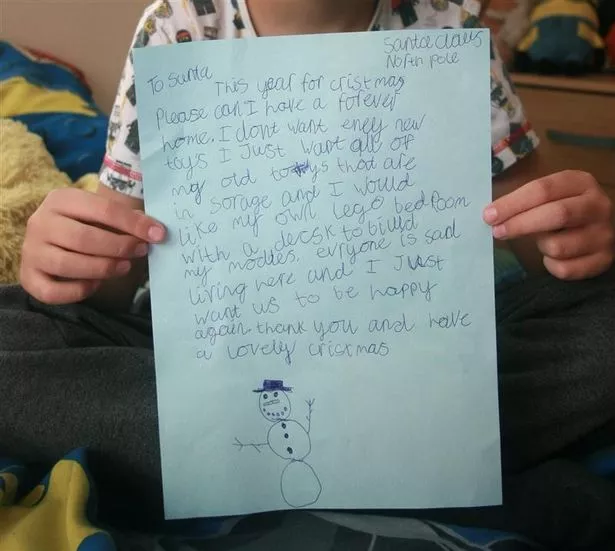 Santa Claus
North pole
To Santa
This year for cristmas
Please can I have a forever
home. I dont want eney new
toys I Just want all of
my old toys that are
in sorage and I would
like my own lego bedroom
with a decsk to biuld
my modles. evryone is sad
living here and I Just
want us to be happy
again. thank you and have
a lovely cristmas